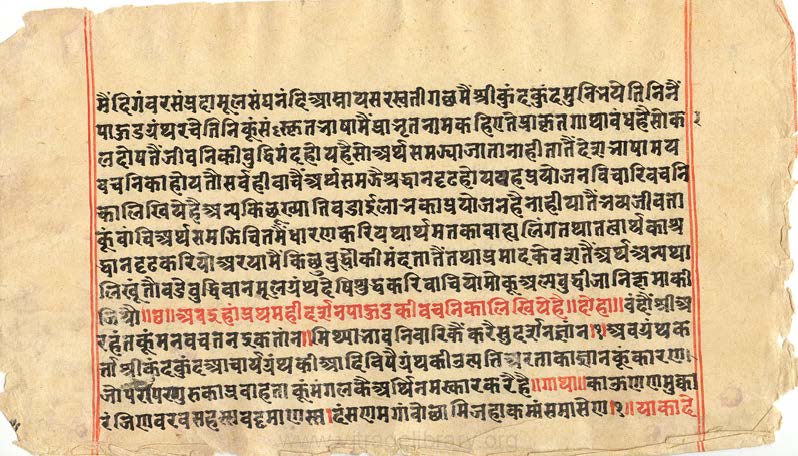 मैं दिगंवरसंप्रदामूलसंघनंदिआम्नायसरस्वतीगछमैं श्रीकुंदकुंदमुनिभये तिनिनैं
पाऊडग्रंथरचे तिनिकूं संस्कृतभाषामैं प्राभृतनामकहिए ते प्राकृतगाथावंधहै सो क
लदोषतैं जीवनिकी बुद्धि मंदहोयहै सो अर्थसमज्याजातानाही तातैं देशभाषामय
वचनिकाहोयतौ सर्वहीवाचैं अर्थसमजै श्रद्धानदृढहोय यहप्रयोजनविचारि वचनि
कालिखियेहै अन्यकिछूख्यातिवडाईलाभकाप्रयोजनहैनाही यातैं भव्यजीव ता
कूं वांचि अर्थसमजि चितमैं धारणकरि यथार्थमतकावाह्यलिंग तथा तत्वार्थकाश्र
द्धानदृढकरियो अर यामैं किछू बुद्धीकी मंदतातैं तथा प्रमादकेवशतैं अर्थ अन्यथा
लिखूं तौ वडेबुद्धिवान मूलग्रंथदेषि शुद्धकरिवाचियो मोकू अल्पबुद्धीजानि क्षमाकी
जियो ॥छ॥ अवइहां प्रथमही दर्शनपाऊडकी वचनिकालिखियेहै ॥दोहा॥ वंदौं श्रीअ
रहंतकूं मनवचतनइकतांन। मिथ्याभावनिवारिकैं करैसुदर्शनज्ञांन।१। अव ग्रंथक
र्ता श्रीकुंदकुंदआचार्य ग्रंथकी आदिविषै ग्रंथकी उत्पति अर ताकाज्ञानकूं कारण।
जो परंपरागुरुकाप्रवाह ताकूं मंगलकैअर्थि नमस्कारकरैहै ॥गाथा॥ काऊणणमुक्का
रं जिणवरवसहस्सवट्टमाणस्स। दंसणमग्गंवोछामि जहाकम्मंसमासेण।१। याका दे
www.jtragelibrary.org